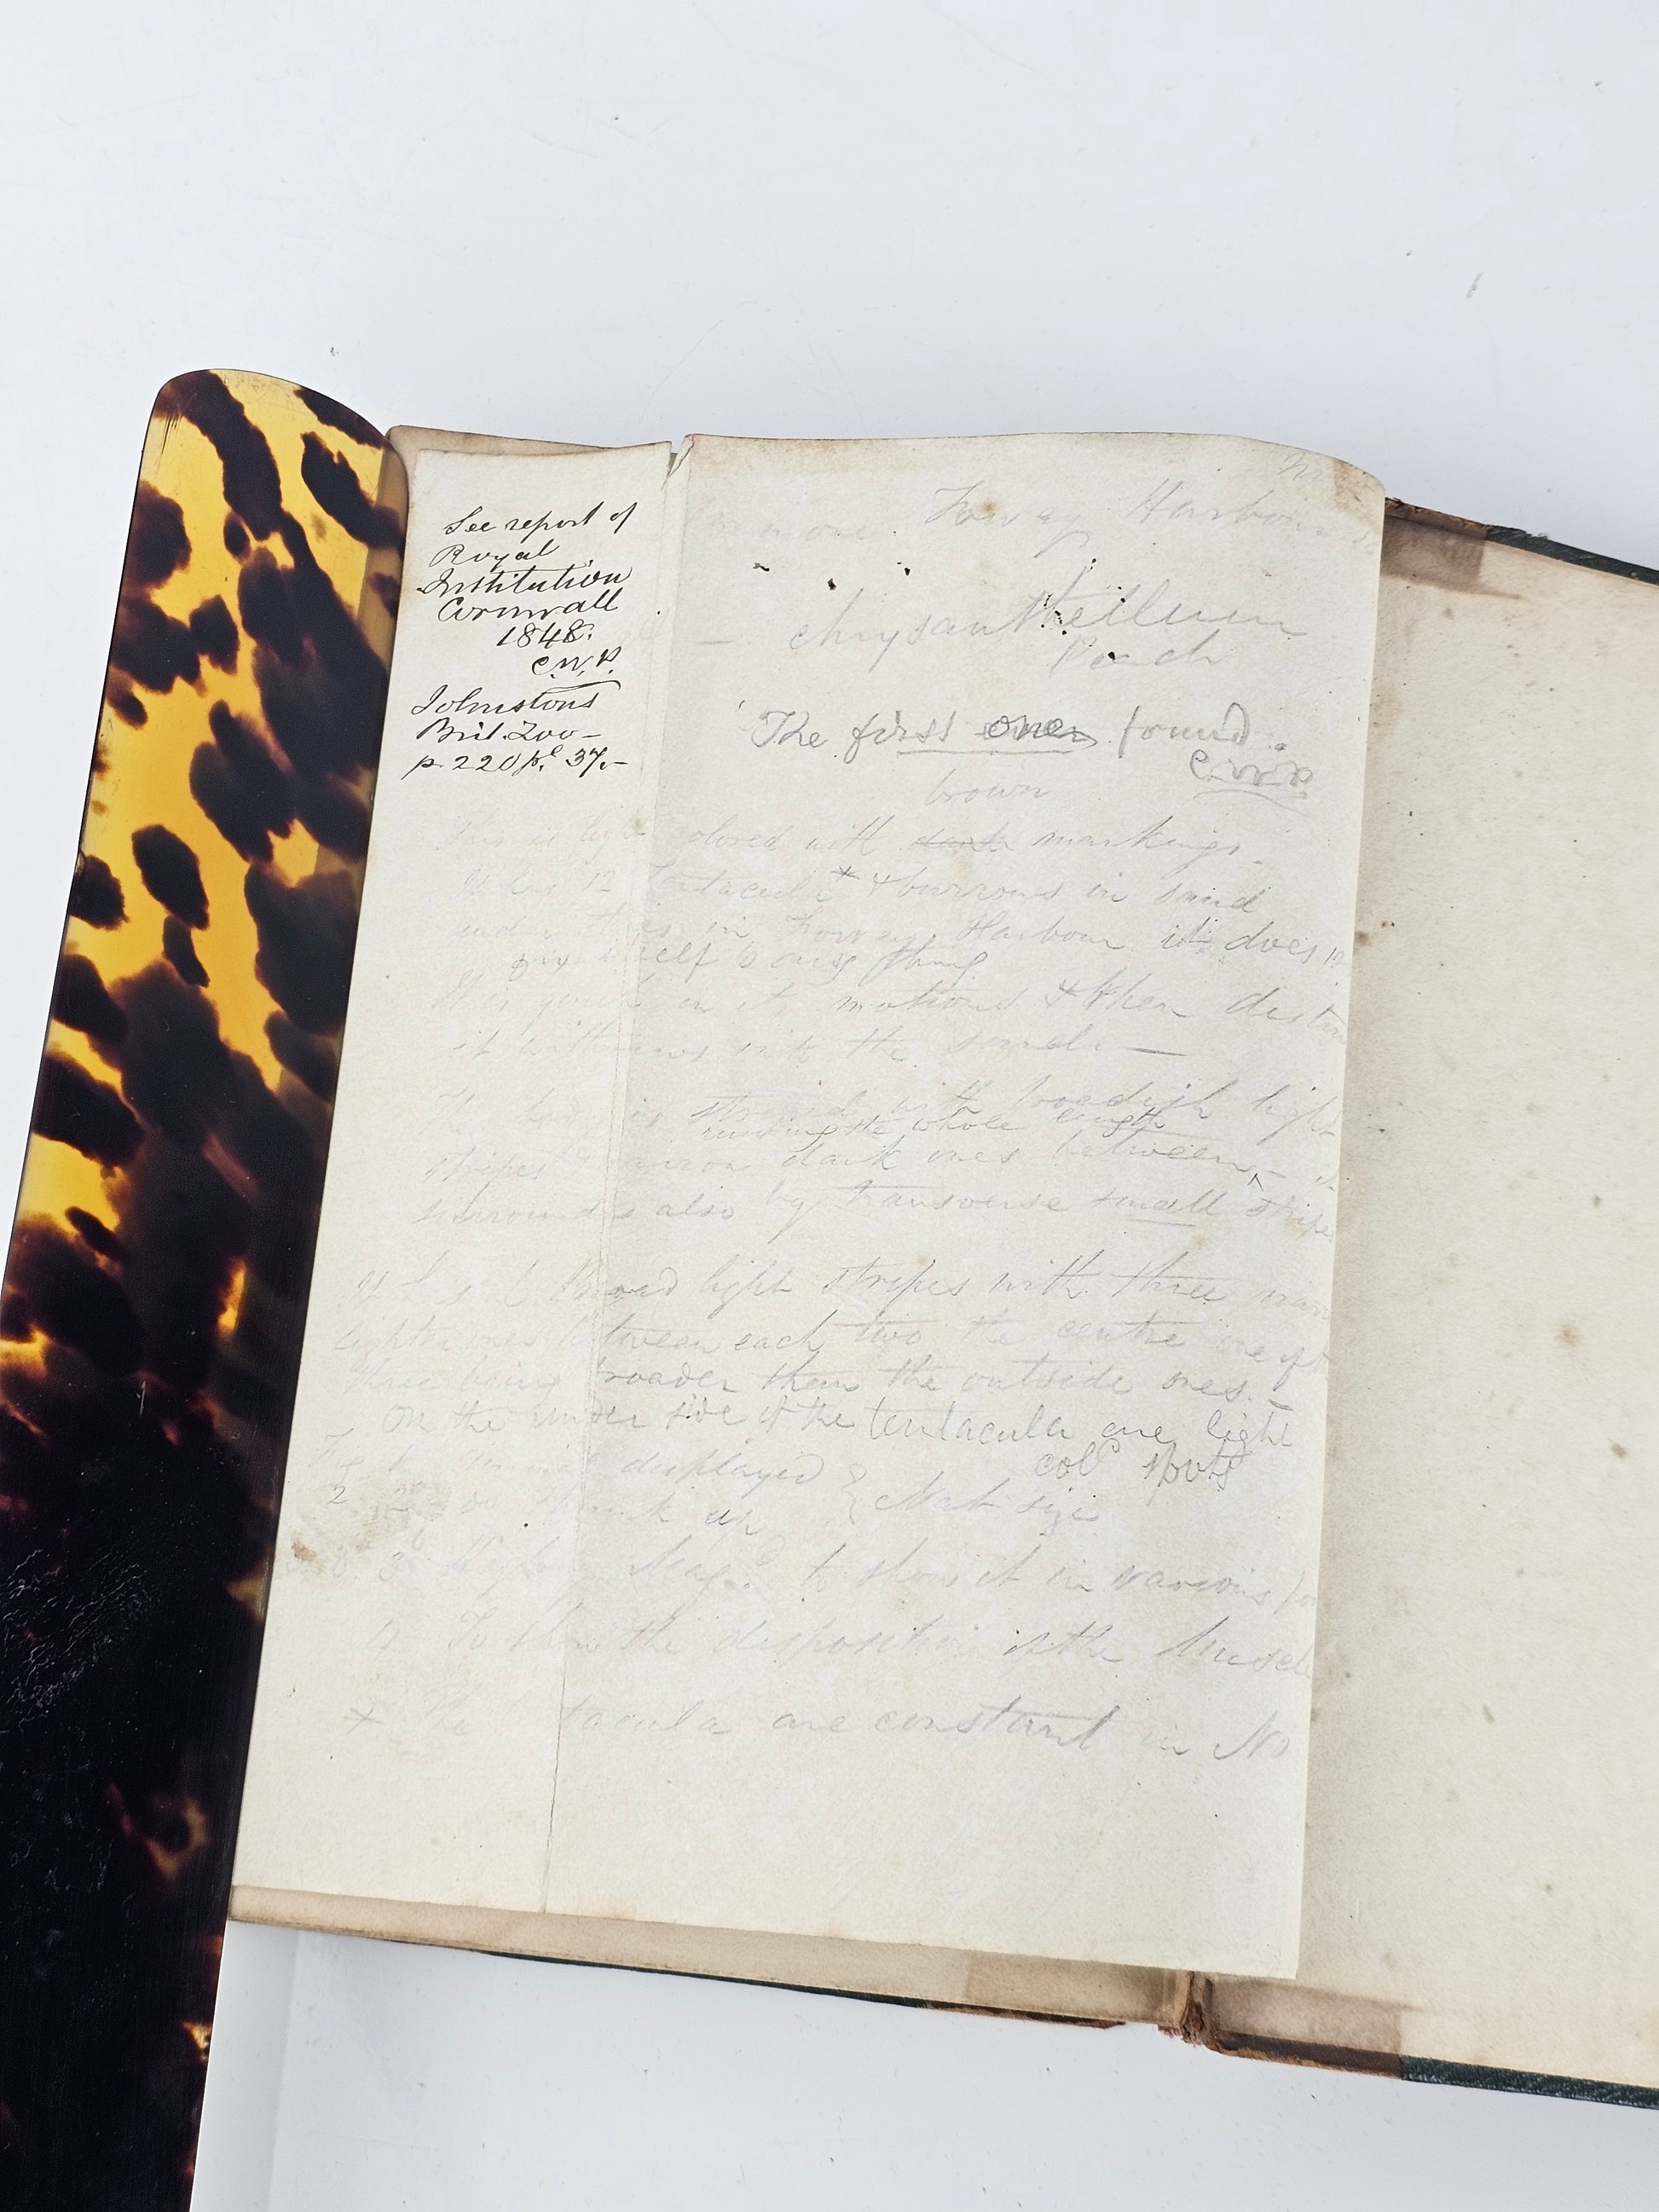 See report of
Royal
Institution
Cornwall
1848.
C.W.P.
Johnstons
Brit. Zoo –
p. 220 pl. 37. –
Fowey Harbour
– chrysanthellum
Peach
The first ones found.
CWP
brown
This is light colored with dark markings.
It has 12 Tentacula * & burrows in sand
under this in Fowey Harbour it does n
fix itself to any thing
It is quick in its motions & when distur
it withdraws into the sand. —
The body is striped with broadish light
running the whole length
stripes & narrow dark ones between ^ –
surrounds also by transverse small stripe
It has 6 Broad light stripes with three narr
lighter ones between each two the centre one of th
three being broader than the outside ones. –
On the under side of the tentacula are light
col^d spots
Fig 1 Animal displayed
2. 2^a do shrunk up } Nat size
3. 3^b Highly Mag^d to show it in various po
4 To show the disposition of the Muscle
* The Tentacula are constant in No